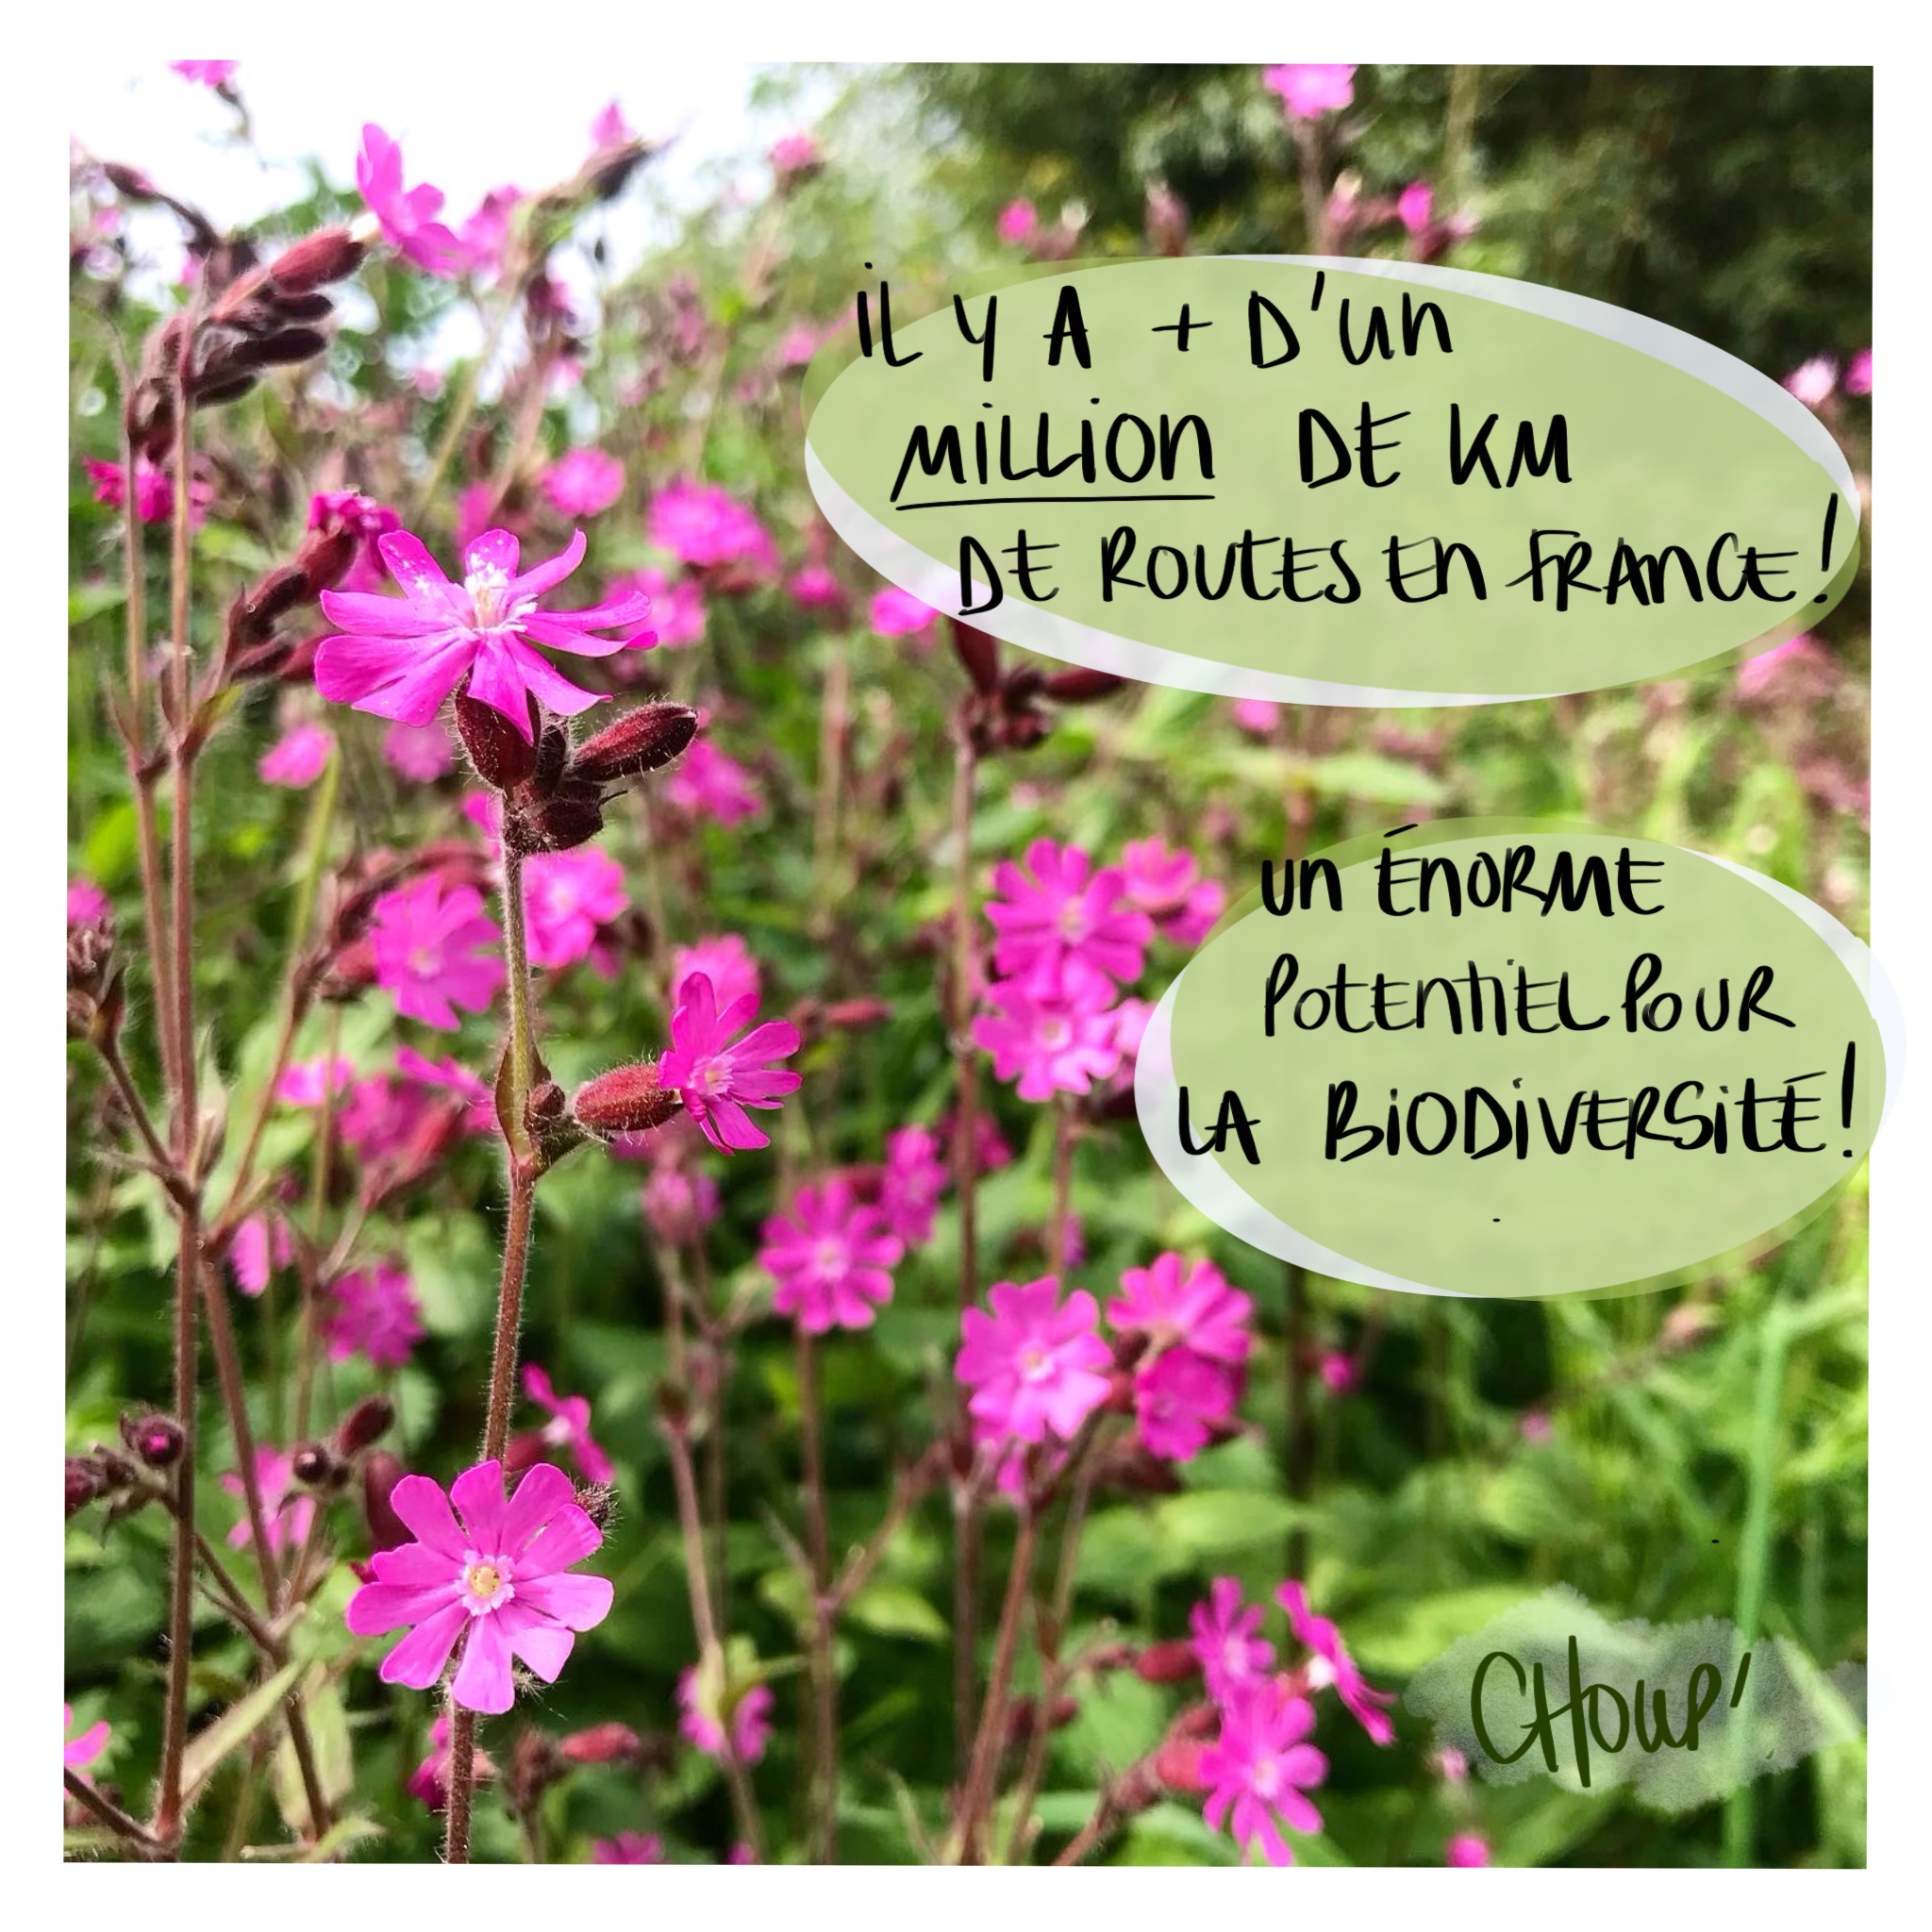 iL Y A + D'un
MiLLiOn DE KM
DE ROUTES En FRANCE!
un ÉNORME
POTENTIEL POUR
LA BIODIVERSITÉ!
CHOUP'